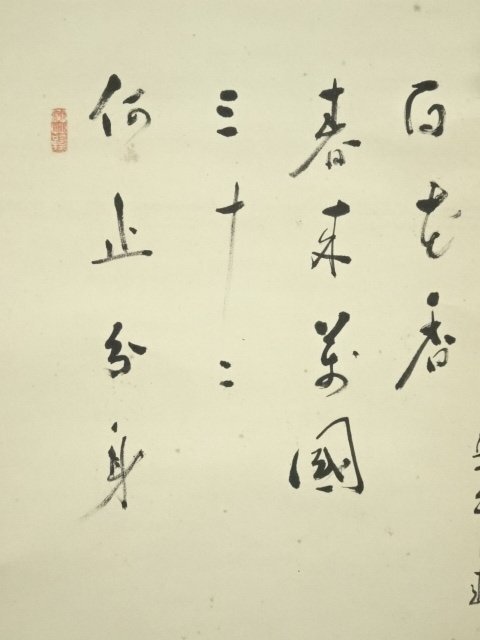 何止分身
三十二
春来萬國
百花香